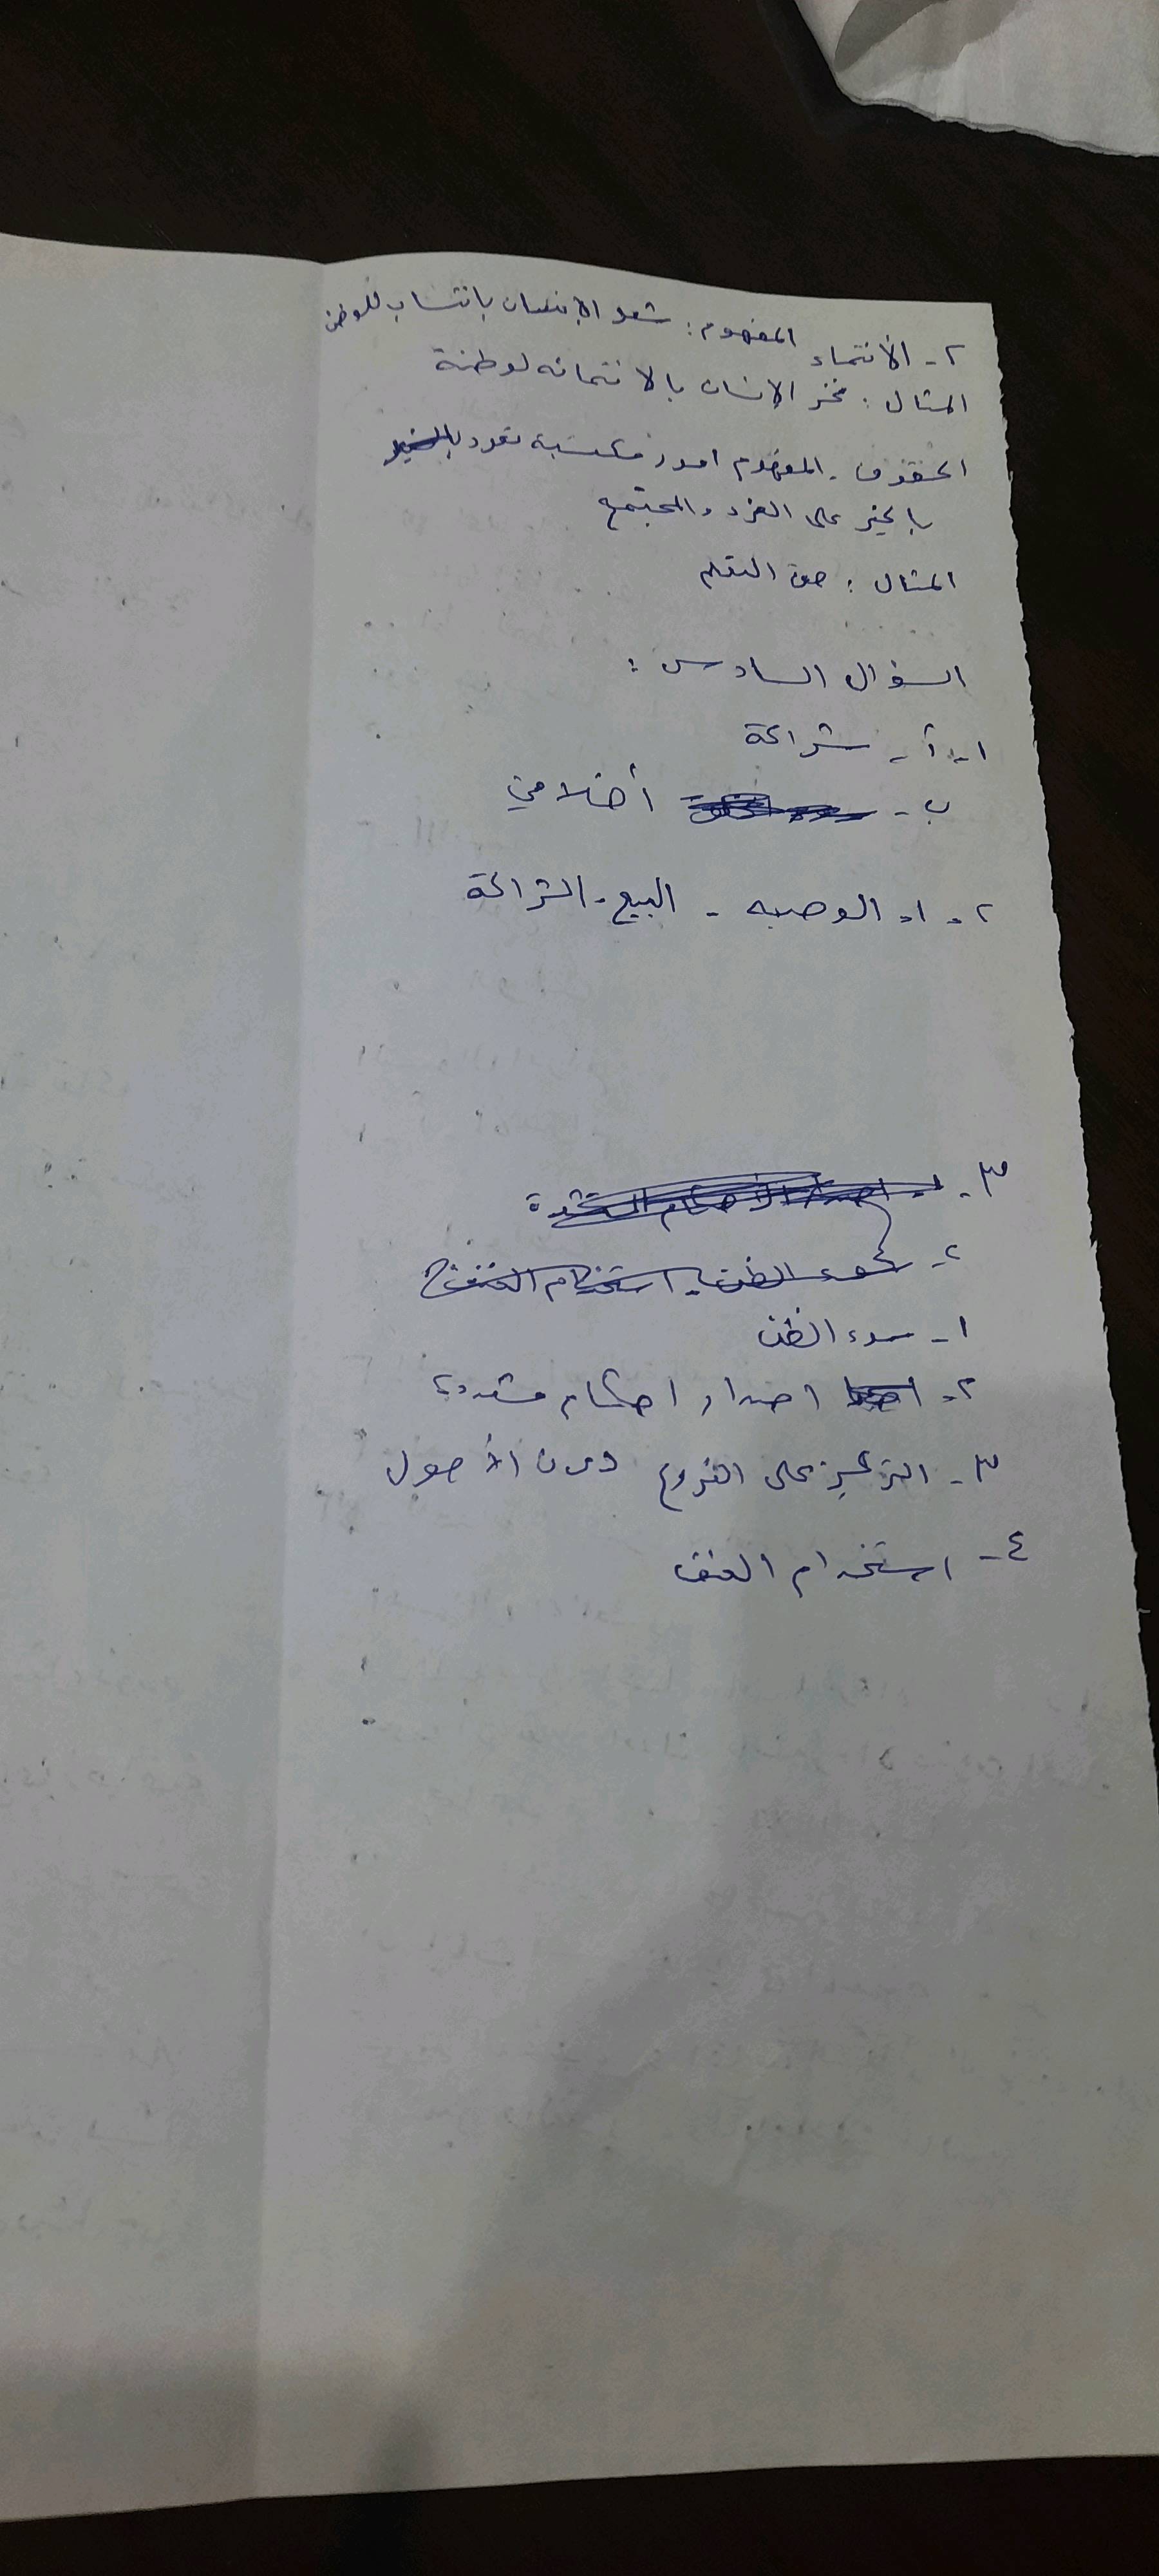 ٢- الأنتماء المفهوم: شعور الإنسان بانتساب للوطن
المثال: فخر الإنسان بالانتمائه لوطنة
الحقوق - المفهوم امور مكتسبة تعود
بالخير على الفرد والمجتمع
المثال: حق التعلم
السؤال السادس:
١- أ- شراكة
ب- أخلاقي
٢- ١- الوصيه - البيع - الشراكة
٣- ١- اصدار الأحكام المتشددة
٢- سوء الظن - استخدام العنف
١- سوء الظن
٢- اصدار احكام متشددة
٣- التركيز على الفروع دون الأصول
٤- استخدام العنف